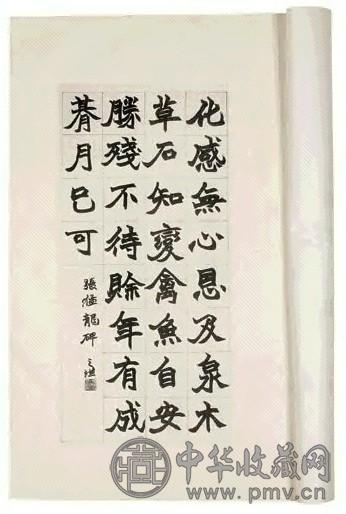 化感無心恩及泉木
草石知變禽魚自安
勝殘不待賒年有成
朞月已可
張猛龍碑 之
中华收藏网
www.pmv.cn